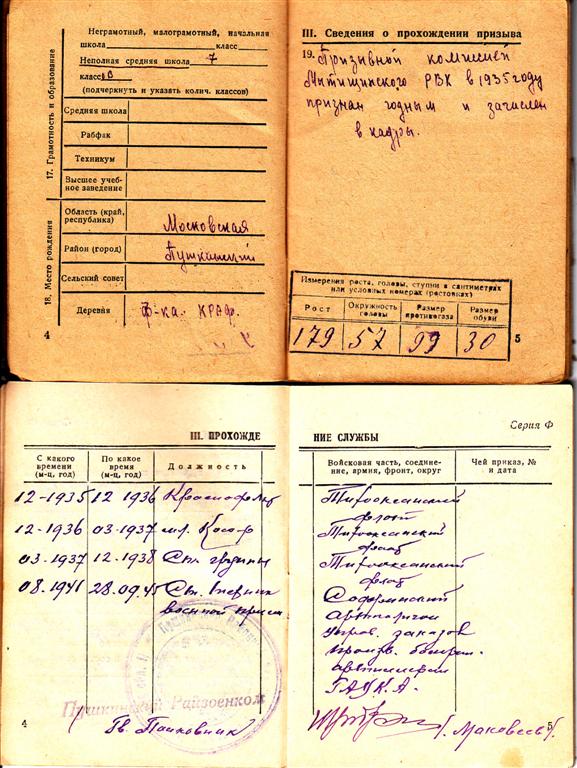 17. Грамотность и образование
Неграмотный, малограмотный, начальная
школа класс
Неполная средняя школа 7
класс
(подчеркнуть и указать колич. классов)
Средняя школа
Рабфак
Техникум
Высшее учеб-
ное заведение
18. Место рождения
Область (край,
республика) Московская
Район (город) Пушкинский
Сельский совет
Деревня ф-ка
4
III. Сведения о прохождении призыва
19. Призывной комиссией
Мытищинского РВК в 1935 году
признан годным и зачислен
в кадры.
Измерения роста, головы, ступни в сантиметрах
или условных номерах (ростовках)
Рост Окружность головы Размер противогаза Размер обуви
179 57 99 30
5
III. ПРОХОЖДЕ
С какого времени (м-ц, год) По какое время (м-ц, год) Должность
12-1935 12 1936 Краснофлот
12-1936 03-1937 мл. Ком-р
03-1937 12-1938 Ст. группы
08.1941 28.09.45 Ст.
военной
Пушкинский Райвоенком
4 Гв. Полковник
Серия Ф
НИЕ СЛУЖБЫ
Войсковая часть, соедине-
ние, армия, фронт, округ Чей приказ, №
и дата
Тихоокеанский
флот
Тихоокеанский
флот
Тихоокеанский
флот
Софринский
заказов
артиллерии
ГАУ К.А.
5